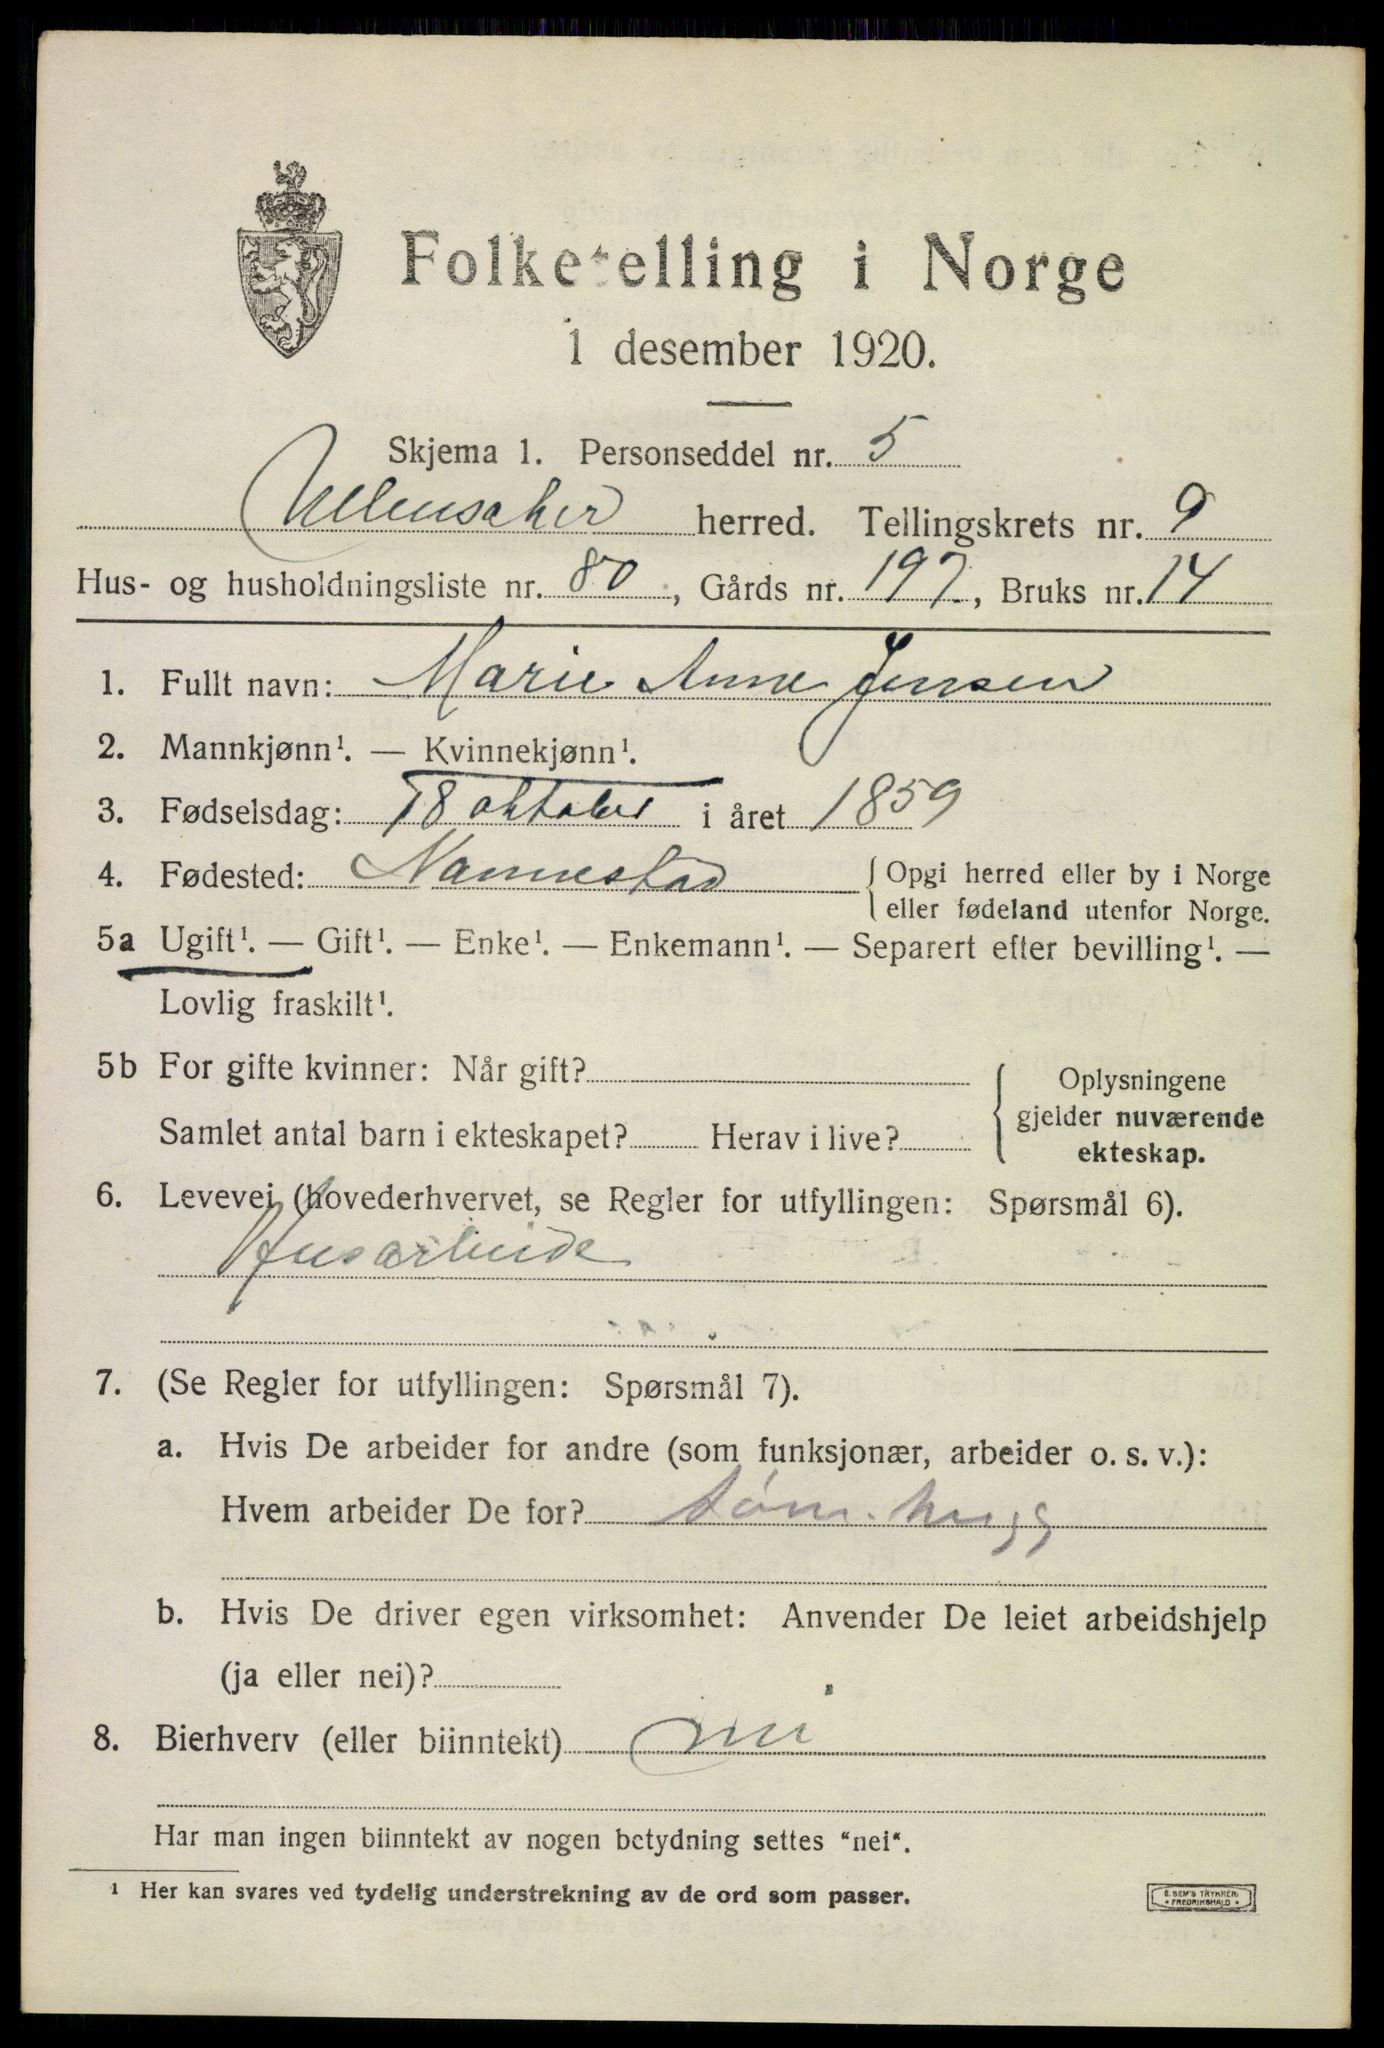 Folketelling i Norge
1 desember 1920.
Skjema 1. Personseddel nr. 5
Ullensaker herred. Tellingskrets nr. 9
Hus- og husholdningsliste nr. 80, Gårds nr. 197, Bruks nr. 14
1. Fullt navn: Marie Anne Jensen
2. Mannkjønn¹. — Kvinnekjønn¹.
3. Fødselsdag: 18 oktober i året 1859
4. Fødested: Nannestad { Opgi herred eller by i Norge
eller fødeland utenfor Norge.
5a Ugift¹. — Gift¹. — Enke¹. — Enkemann¹. — Separert efter bevilling¹. —
Lovlig fraskilt¹.
5b For gifte kvinner: Når gift?
Samlet antal barn i ekteskapet? Herav i live?
{ Oplysningene
gjelder nuværende
ekteskap.
6. Levevei (hovederhvervet, se Regler for utfyllingen: Spørsmål 6).
Husarbeide
7. (Se Regler for utfyllingen: Spørsmål 7).
a. Hvis De arbeider for andre (som funksjonær, arbeider o. s. v.):
Hvem arbeider De for? tøm. hugg
b. Hvis De driver egen virksomhet: Anvender De leiet arbeidshjelp
(ja eller nei)?
8. Bierhverv (eller biinntekt) nei
Har man ingen biinntekt av nogen betydning settes "nei".
¹ Her kan svares ved tydelig understrekning av de ord som passer.
E. SEM'S TRYKKERI
* FREDRIKSHALD *